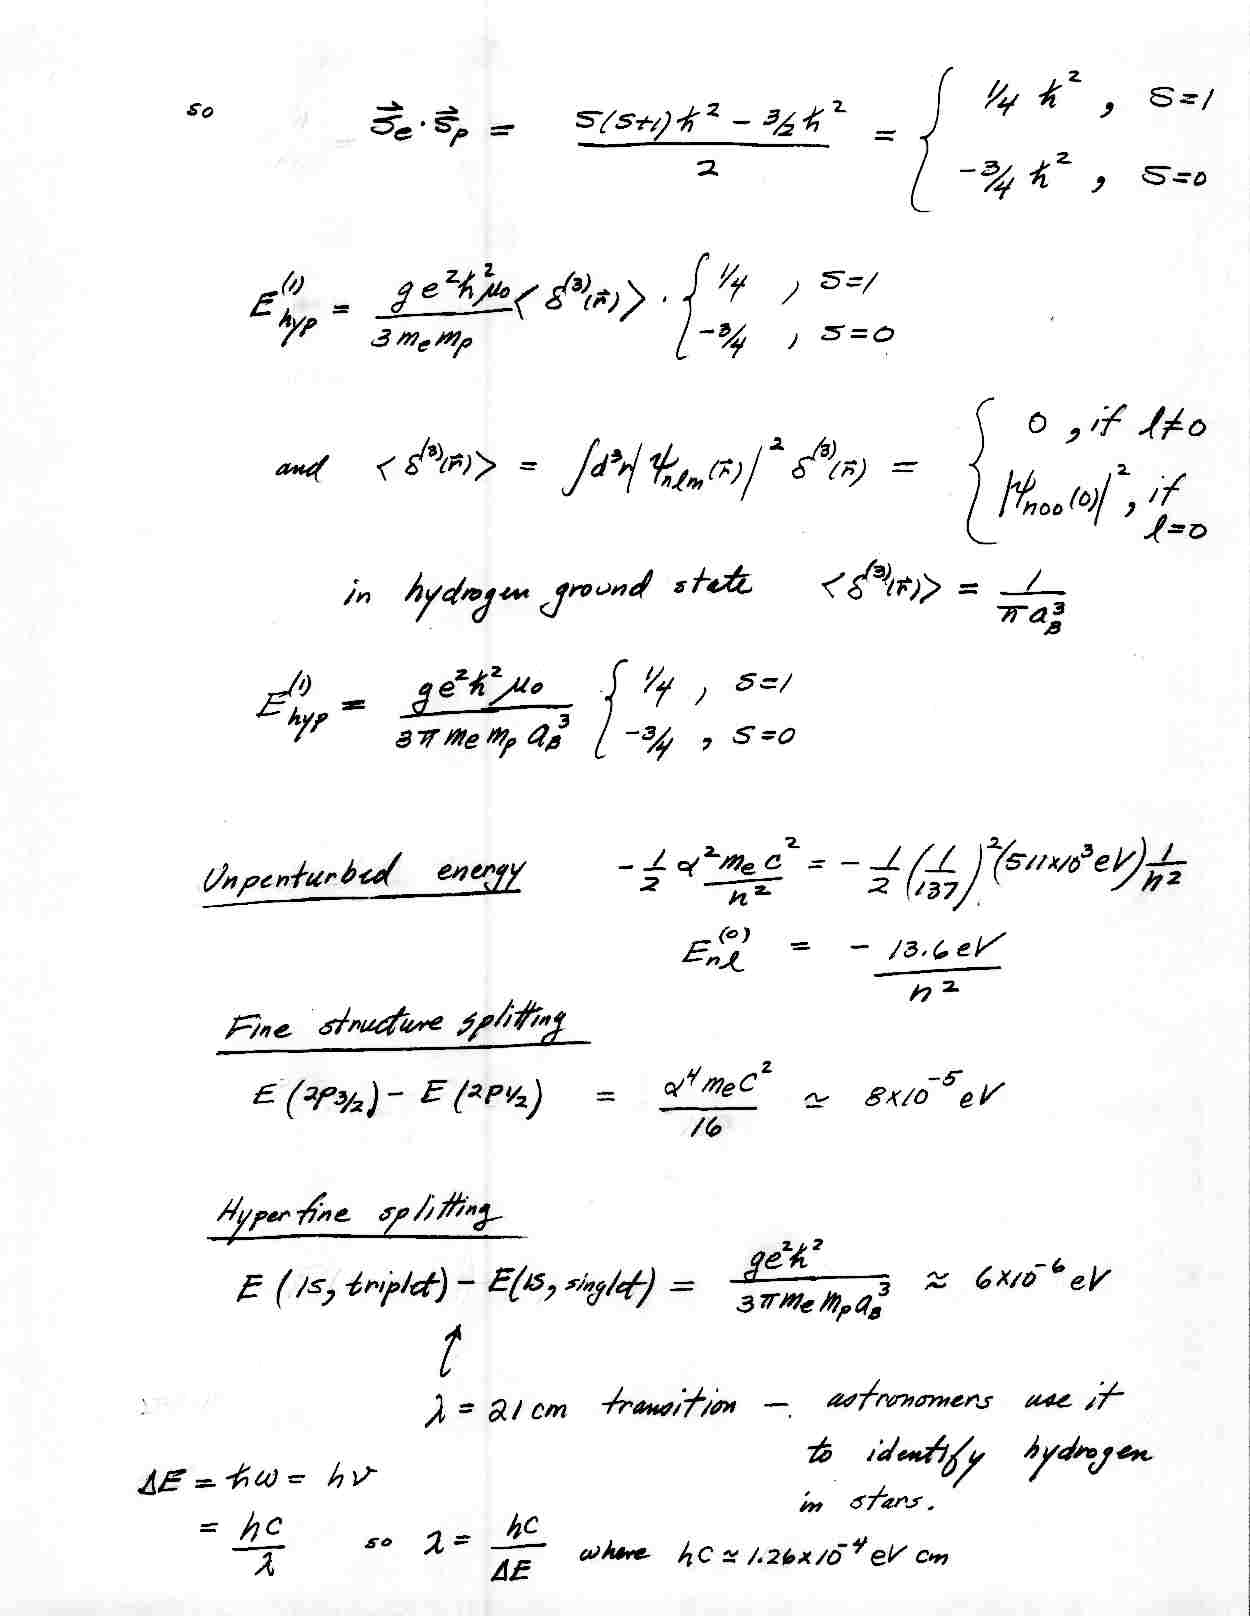 so S⃗e · S⃗p = (S(S+1)ħ² − 3/2 ħ²) / 2 = { 1/4 ħ² , S=1
−3/4 ħ² , S=0
E_hyp^(1) = (g e² ħ² μ₀ / 3 me mp) < δ^(3)(r⃗) > · { 1/4 , S=1
−3/4 , S=0
and < δ^(3)(r⃗) > = ∫d³r |ψ_nlm(r⃗)|² δ^(3)(r⃗) = { 0 , if l≠0
|ψ_n00(0)|² , if l=0
in hydrogen ground state < δ^(3)(r⃗) > = 1 / π a_B³
E_hyp^(1) = g e² ħ² μ₀ / 3π me mp a_B³ { 1/4 , S=1
−3/4 , S=0
Unperturbed energy −1/2 α² me c² / n² = −1/2 (1/137)² (511×10³ eV) 1/n²
E_nl^(0) = − 13.6 eV / n²
Fine structure splitting
E (2P3/2) − E (2P1/2) = α⁴ me c² / 16 ≃ 8×10⁻⁵ eV
Hyperfine splitting
E (1S, triplet) − E(1S, singlet) = g e² ħ² / 3π me mp a_B³ ≈ 6×10⁻⁶ eV
λ = 21 cm transition — astronomers use it
to identify hydrogen
in stars.
ΔE = ħω = hν
= hc / λ so λ = hc / ΔE where hc ≃ 1.26×10⁻⁴ eV cm